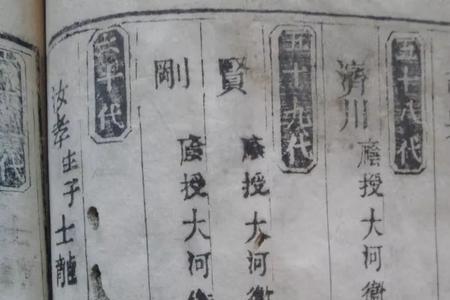 五十八代
濟川
廕授大河衛
五十九代
賢
廕授大河衛
剛
廕授大河衛
六十代
汝孝生子士龍